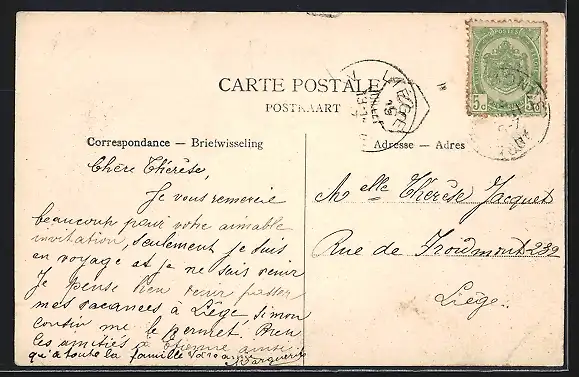 CARTE POSTALE
POSTKAART
Correspondance — Briefwisseling
Adresse — Adres
POSTES
5c 5c
LIEGE
Chère Thérèse,
Je vous remercie
beaucoup pour votre aimable
invitation, seulement je suis
en voyage et je ne sais venir
Je pense bien venir passer
mes vacances à Liége, si mon
cousin me le permet. Bien
les amitiés à Etienne ainsi
qu'a toute la famille Marguerite
Melle Thérèse Jacquet
Rue de Froidmont 239
Liége.